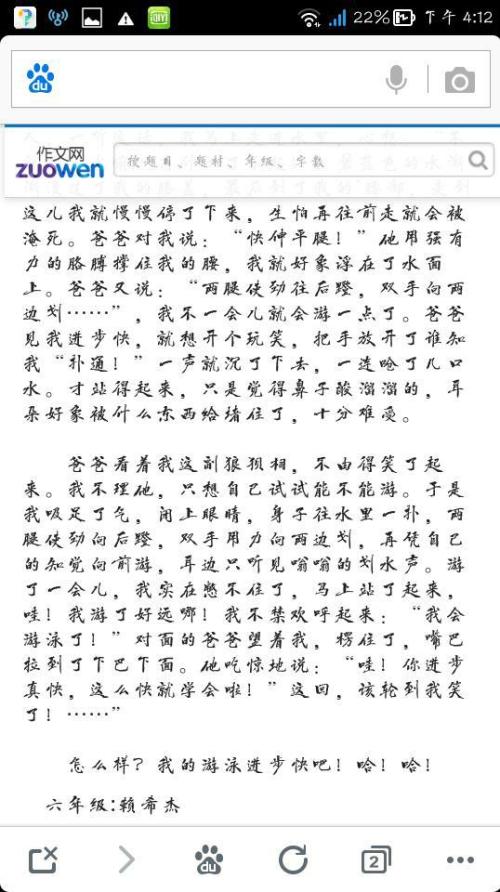 22% 下午 4:12
du
作文网
zuowen
搜题目、题材、年级、字数
这儿我就慢慢停了下来，生怕再往前走就会被
淹死。爸爸对我说：“快伸平腿！”他用强有
力的胳膊撑住我的腰，我就好象浮在了水面
上。爸爸又说：“两腿使劲往后蹬，双手向两
边划……”，我不一会儿就会游一点了。爸爸
见我进步快，就想开个玩笑，把手放开了谁知
我“扑通！”一声就沉了下去，一连呛了几口
水。才站得起来，只是觉得鼻子酸溜溜的，耳
朵好象被什么东西给堵住了，十分难受。
爸爸看着我这副狼狈相，不由得笑了起
来。我不理他，只想自己试试能不能游。于是
我吸足了气，闭上眼睛，身子往水里一扑，两
腿使劲向后蹬，双手用力向两边划，再凭自己
的知觉向前游，耳边只听见嗡嗡的划水声。游
了一会儿，我实在憋不住了，马上站了起来，
哇！我游了好远哪！我不禁欢呼起来：“我会
游泳了！”对面的爸爸望着我，楞住了，嘴巴
拉到了下巴下面。他吃惊地说：“哇！你进步
真快，这么快就学会啦！”这回，该轮到我笑
了！……”
怎么样？我的游泳进步快吧！哈！哈！
六年级:赖希杰
du
2